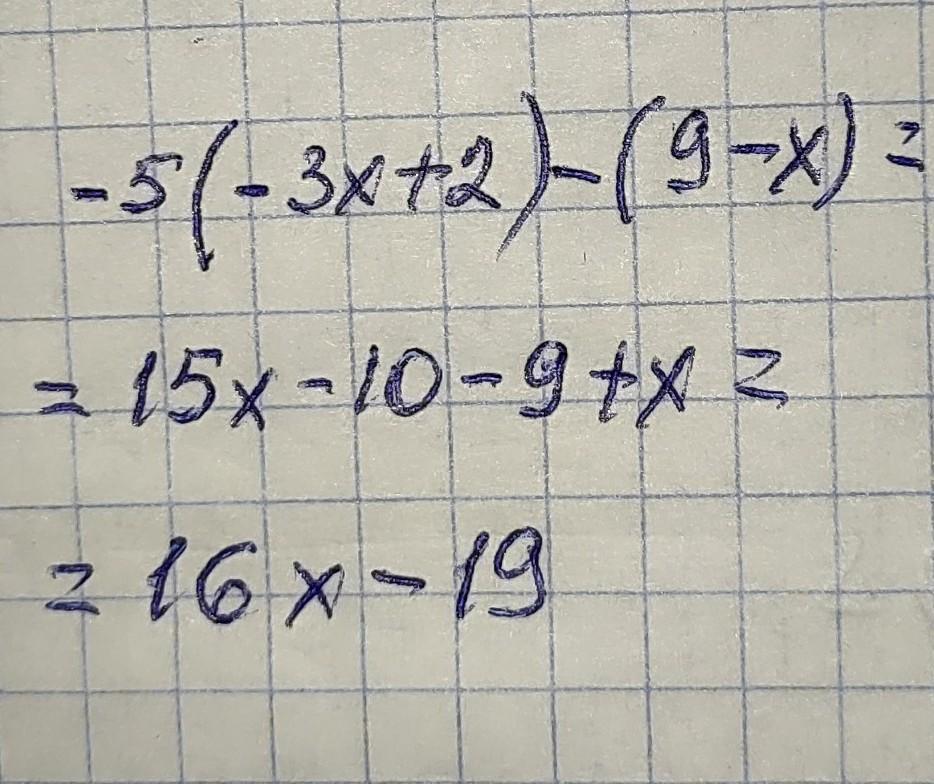 -5(-3x+2)-(9-x)=
=15x-10-9+x=
=16x-19